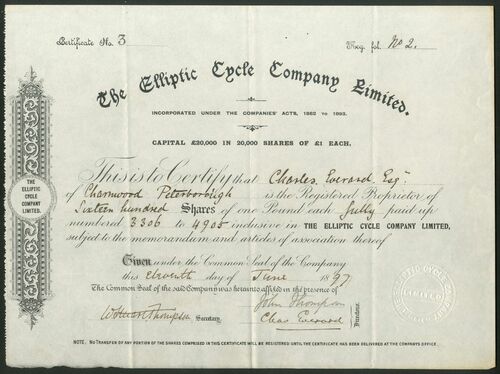 Certificate No. 3
Reg. fol. No 2.
The Elliptic Cycle Company Limited.
INCORPORATED UNDER THE COMPANIES' ACTS, 1862 TO 1893.
CAPITAL £20,000 IN 20,000 SHARES OF £1 EACH.
This is to Certify that Charles Everard Esqre
of Charnwood Peterborough is the Registered Proprietor of
Sixteen hundred Shares of one Pound each fully paid up
numbered 3306 to 4905 inclusive in THE ELLIPTIC CYCLE COMPANY LIMITED,
subject to the memorandum and articles of association thereof
THE
ELLIPTIC
CYCLE
COMPANY
LIMITED.
Given under the Common Seal of the Company
this eleventh day of June 1897
The Common Seal of the said Company was hereunto affixed in the presence of
Thompson Secretary.
John Thompson
Chas Everard
Directors.
LIMITED
NOTE. NO TRANSFER OF ANY PORTION OF THE SHARES COMPRISED IN THIS CERTIFICATE WILL BE REGISTERED UNTIL THE CERTIFICATE HAS BEEN DELIVERED AT THE COMPANY'S OFFICE.